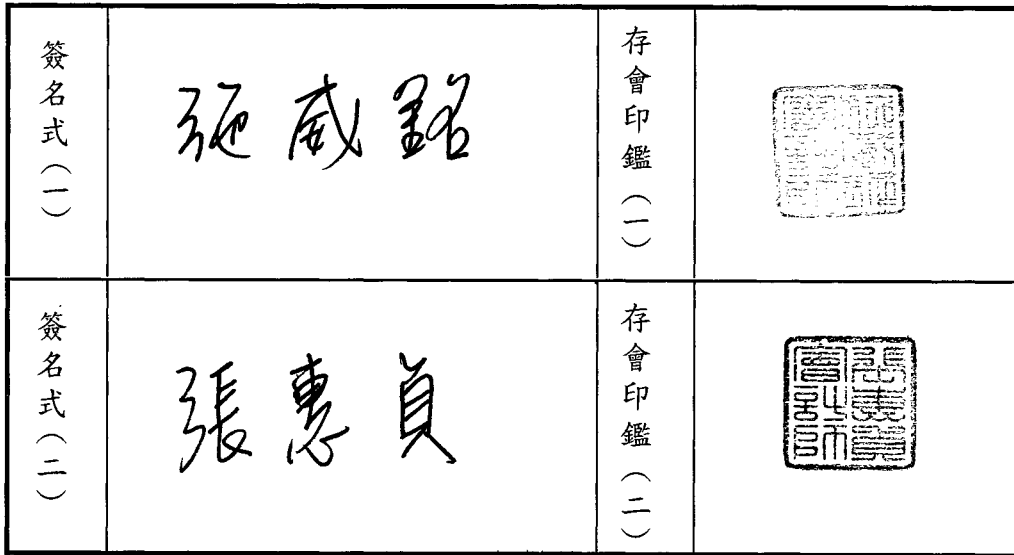 簽名式(一)
施威銘
存會印鑑(一)
簽名式(二)
張惠貞
存會印鑑(二)
張惠貞
會計師